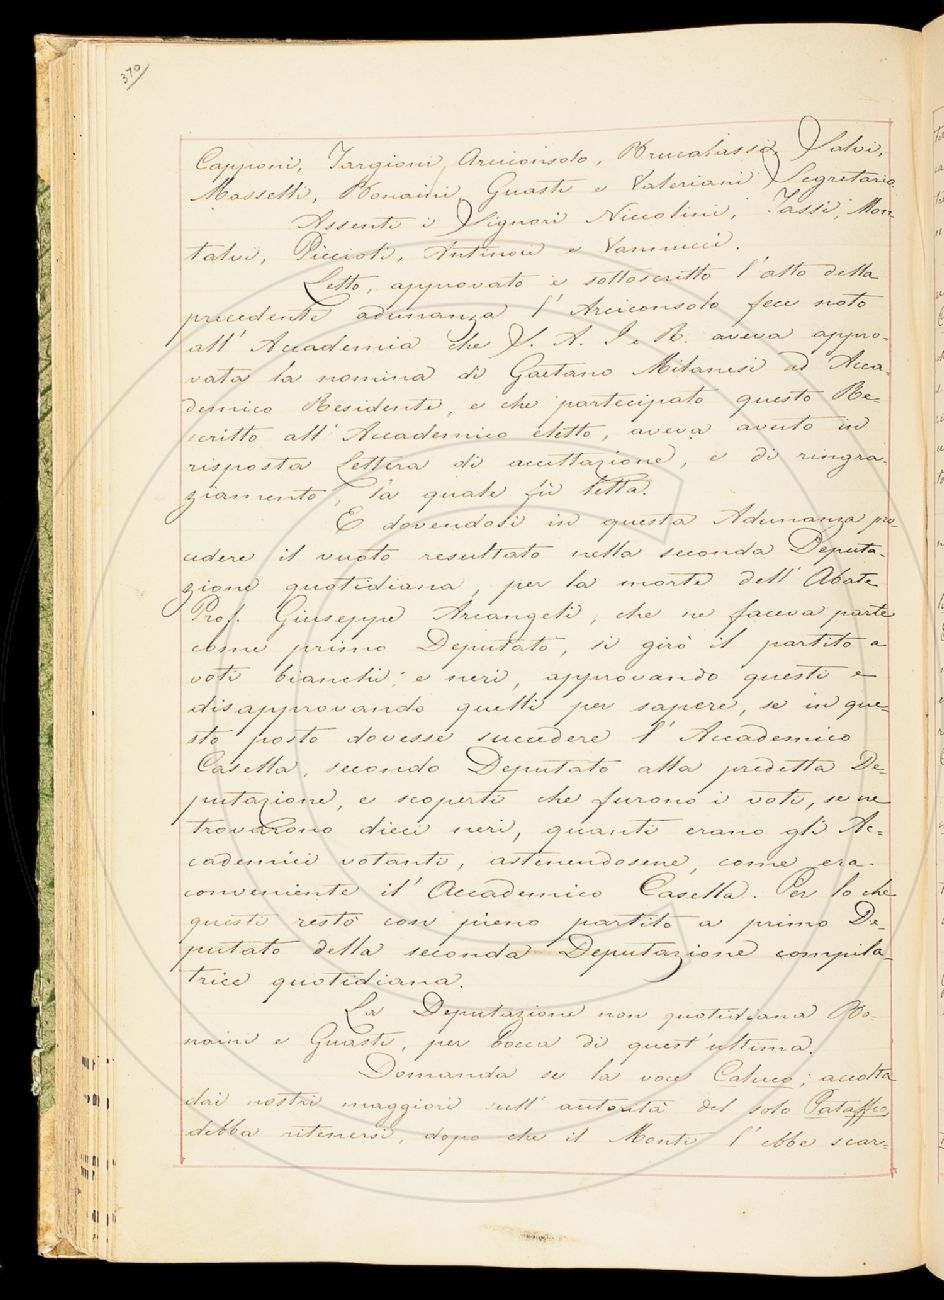 370
Capponi, Targioni, Arciconsolo, Brucalassi, Salvi,
Masselli, Bonaini, Guasti e Valeriani Segretario.
Assenti i Signori Niccolini, Tassi, Mon-
talvi, Piccioli, Antinori e Vannucci.
Letto, approvato e sottoscritto l'atto della
precedente adunanza l'Arciconsolo fece noto
all'Accademia che S. A. I. e R. aveva appro-
vata la nomina di Gaetano Milanesi ad Acca-
demico Residente, e che partecipato questo Re-
scritto all'Accademico eletto, aveva avuto in
risposta Lettera di accettazione, e di ringra-
ziamento, la quale fù letta.
E dovendosi in questa Adunanza pro-
cedere il vuoto resultato nella seconda Deputa-
zione quotidiana, per la morte dell'Abate
Prof. Giuseppe Arcangeli, che ne faceva parte
come primo Deputato, si girò il partito a
voti bianchi e neri, approvando questi e
disapprovando quelli per sapere, se in que-
sto posto dovesse succedere l'Accademico
Casella, secondo Deputato alla predetta De-
putazione, e scoperti che furono i voti, se ne
trovarono dieci neri, quanti erano gli Ac-
cademici votanti, astenendosene, come era
conveniente il Accademico Casella. Per lo che
questi restò con pieno partito a primo De-
putato della seconda Deputazione compila-
trice quotidiana.
La Deputazione non quotidiana Bo-
naini e Guasti, per bocca di quest'ultima.
Domanda se la voce Caluco, accolta
dai nostri maggiori sull'autorità del solo Pataffio,
debba ritenersi, dopo che il Monti l'ebbe scar-